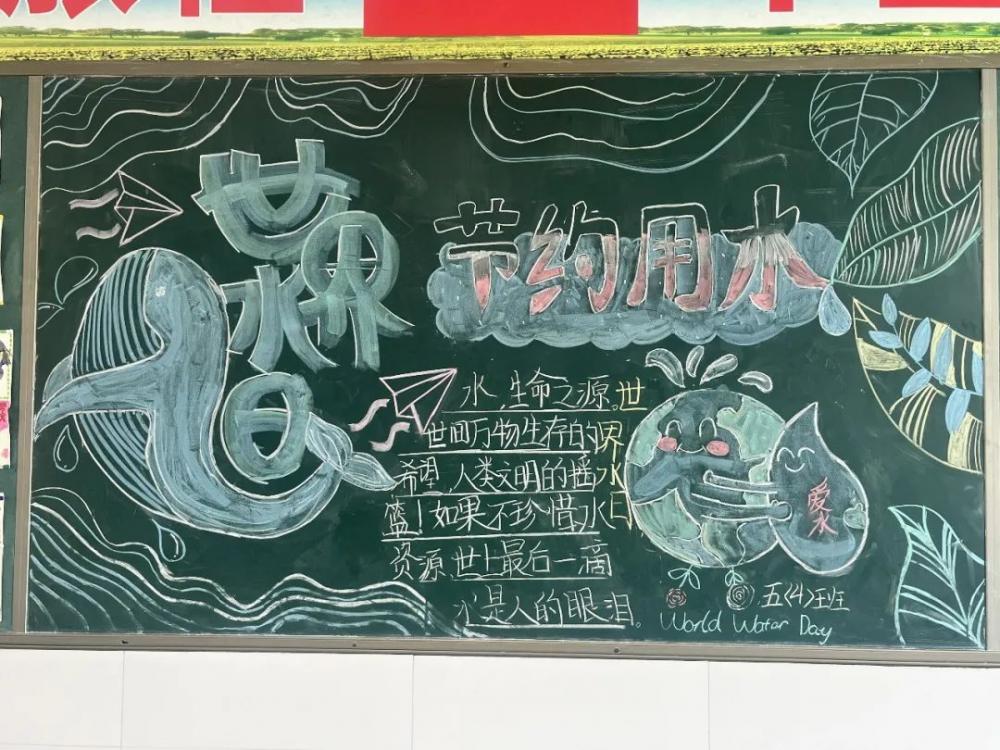 世界
水
日
节约用水
水,生命之源。
世间万物生存的
希望,人类文明的摇
篮!如果不珍惜水
资源,世上最后一滴
水是人的眼泪。
世界水日
爱水
五(4)班
World Water Day